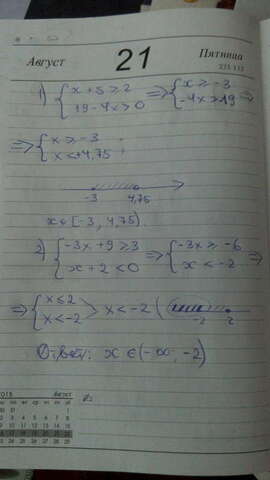 Август 21 Пятница
233-132
1) { x + 5 ≥ 2 => { x ≥ -3
19 - 4x > 0 -4x > 19 =>
=> { x ≥ -3
x < +4,75 ;
-3 4,75
x ∈ [-3, 4,75)
2) { -3x + 9 ≥ 3 => { -3x ≥ -6
x + 2 < 0 x < -2 =>
=> { x ≤ 2 > x < -2 (
x < -2 -2 2
Ответ: x ∈ (-∞, -2)
Август